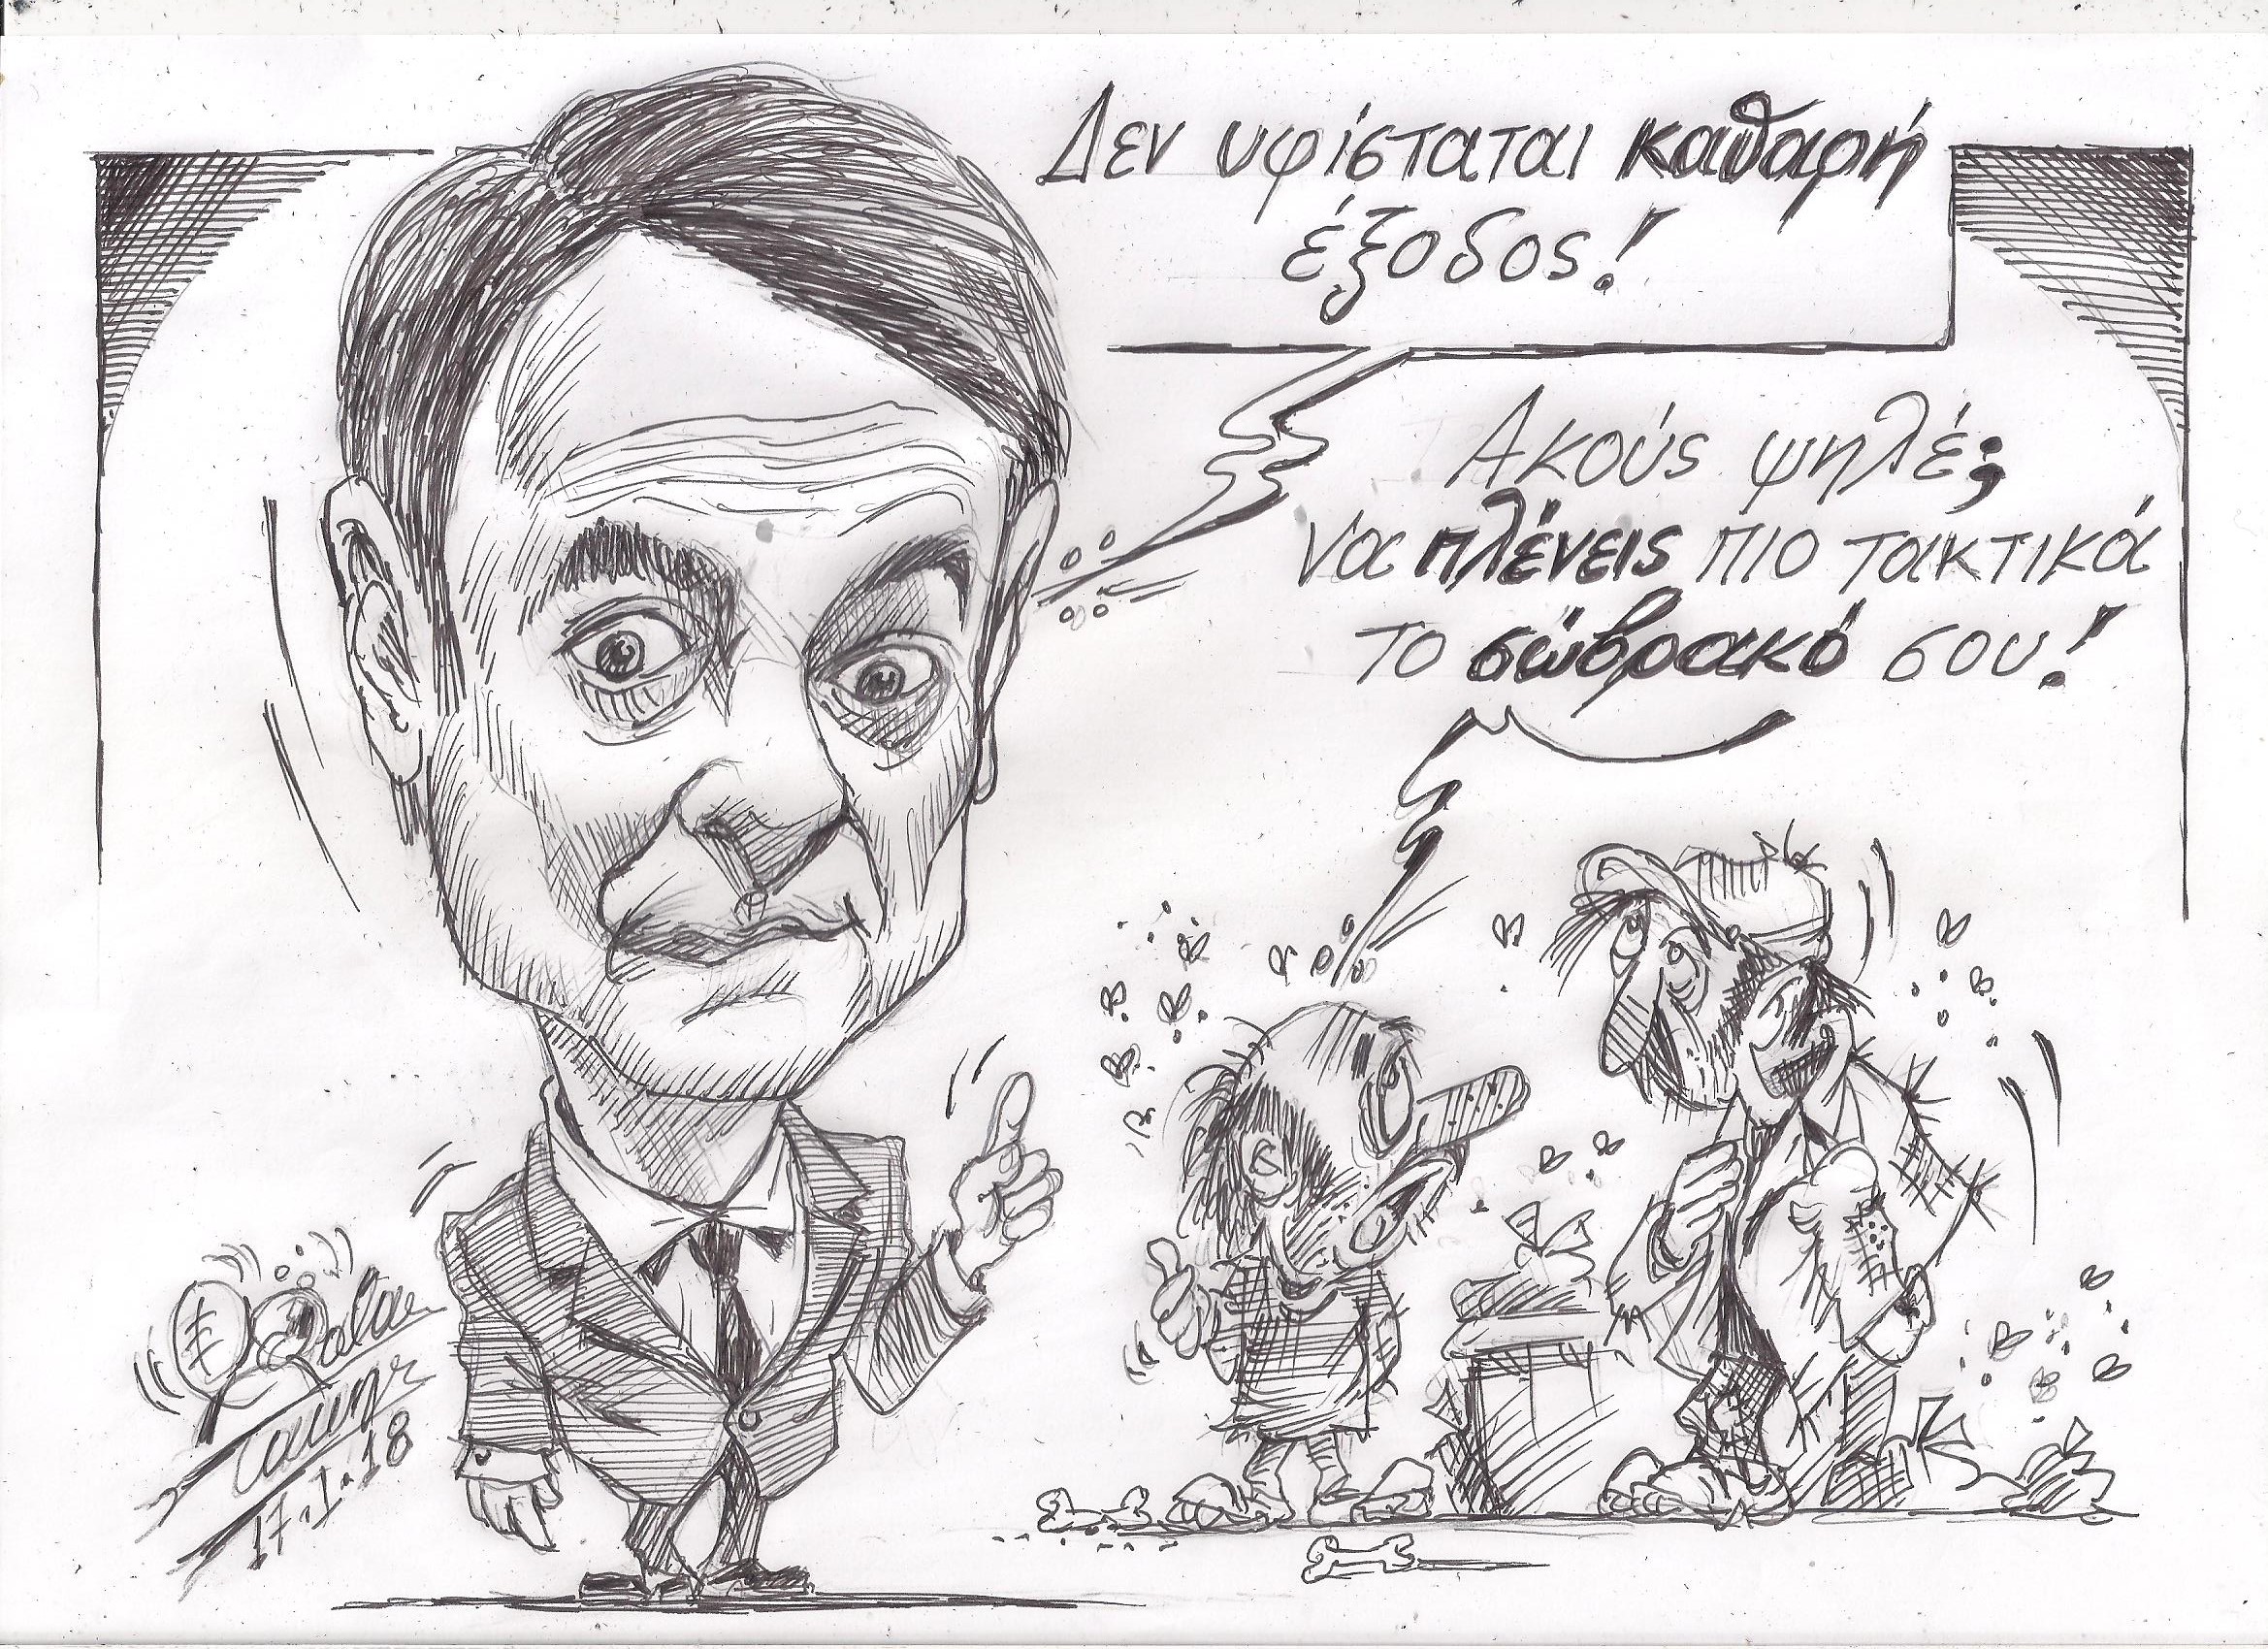 Δεν υφίσταται καθαρή
έξοδος!
Ακούς ψηλέ;
να πλένεις πιο τακτικά
το σώβρακό σου!
17-1-18